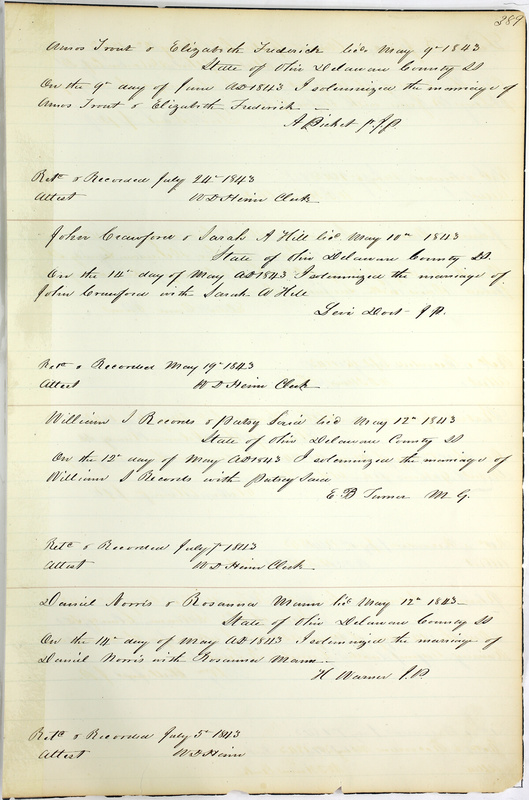 389
Amos Trout & Elizabeth Frederick Licd May 9th 1843
State of Ohio Delaware County SS
On the 9th day of June AD 1843 I solemnized the marriage of
Amos Trout & Elizabeth Frederick
A Picket J.P.
Retd & Recorded July 24th 1843
Attest W D Heim Clerk
John Crawford & Sarah A Hill Licd May 10th 1843
State of Ohio Delaware County SS
On the 14th day of May AD 1843 I solemnized the marriage of
John Crawford with Sarah A Hill
Levi Dort J.P.
Retd & Recorded May 19th 1843
Attest W D Heim Clerk
William S Records & Patsy Licd May 12th 1843
State of Ohio Delaware County SS
On the 12th day of May AD 1843 I solemnized the marriage of
William S Records with Patsy
E B Turner M.G.
Retd & Recorded July 7th 1843
Attest W D Heim Clerk
Daniel Norris & Rosanna Mann Licd May 12th 1843
State of Ohio Delaware County SS
On the 14th day of May AD 1843 I solemnized the marriage of
Daniel Norris with Rosanna Mann
H Warner J.P.
Retd & Recorded July 5th 1843
Attest W D Heim